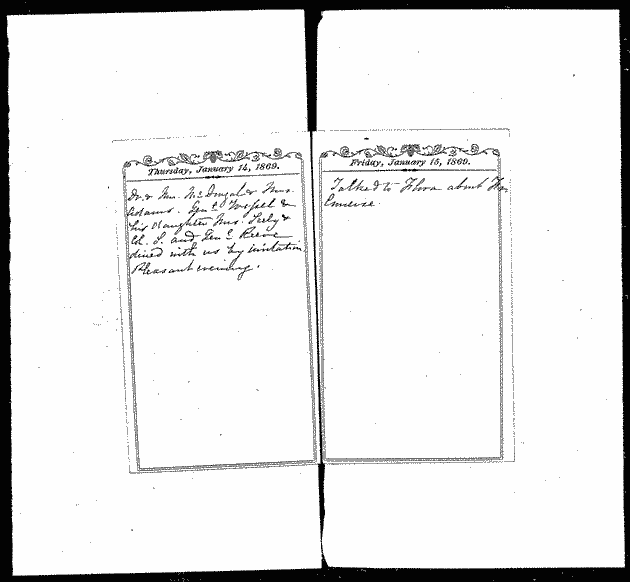 Thursday, January 14, 1869.
Dr. & Mrs. McDougal & Mrs.
Adams. Genl
his daughter Mrs. Seely &
Col. S. and Genl Reeve
dined with us by invitation
Pleasant evening.
Friday, January 15, 1869.
Talked to Flora about